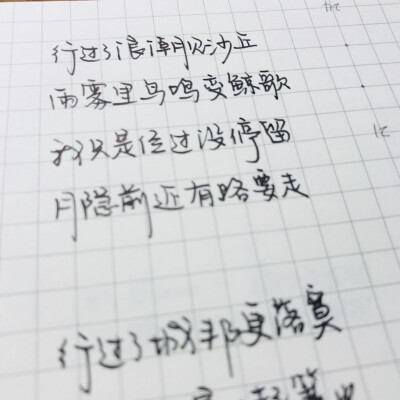 行过了浪 沙丘
雨雾里鸟鸣变鲸歌
我只是经过没停留
月隐前还有路要走
行过了城邦更落寞